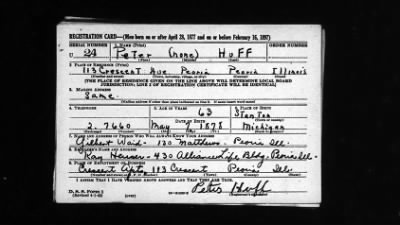 REGISTRATION CARD—(Men born on or after April 28, 1877 and on or before February 16, 1897)
SERIAL NUMBER 1. NAME (Print)
U 24 Peter (none) Huff
2. PLACE OF RESIDENCE (Print)
113 Crescent Ave Peoria Peoria Illinois
[THE PLACE OF RESIDENCE GIVEN ON THE LINE ABOVE WILL DETERMINE LOCAL BOARD
JURISDICTION; LINE 2 OF REGISTRATION CERTIFICATE WILL BE IDENTICAL]
3. MAILING ADDRESS
Same
4. TELEPHONE 5. AGE IN YEARS 6. PLACE OF BIRTH
63 Stanton
DATE OF BIRTH
2-7660 May 7 1878 Michigan
7. NAME AND ADDRESS OF PERSON WHO WILL ALWAYS KNOW YOUR ADDRESS
Gilbert Waid - 130 Matthews - Peoria Ill.
8. EMPLOYER'S NAME AND ADDRESS
Ray Hauser - 430 Alliance Life Bldg. Peoria Ill.
9. PLACE OF EMPLOYMENT OR BUSINESS
Crescent Apts 113 Crescent Peoria Ill.
I AFFIRM THAT I HAVE VERIFIED ABOVE ANSWERS AND THAT THEY ARE TRUE.
D. S. S. Form 1
Peter Huff